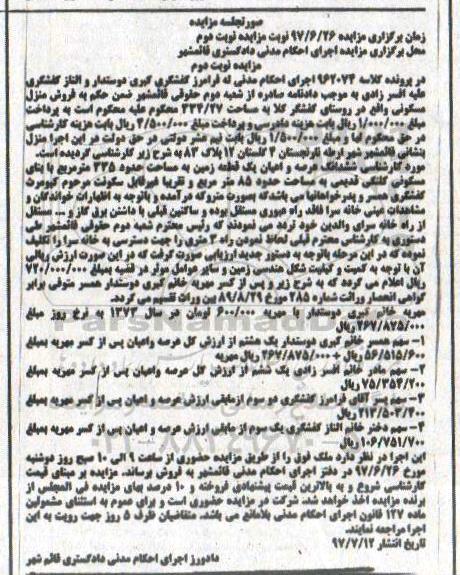 صورتجلسه مزایده
زمان برگزاری مزایده ۹۷/۶/۲۶ نوبت مزایده نوبت دوم
محل برگزاری مزایده اجرای احکام مدنی دادگستری قائمشهر
مزایده نوبت دوم
در پرونده کلاسه ۹۶۲۰۷۴ اجرای احکام مدنی له فرامرز کفشگری کبری دوستدار و الناز کفشگری
علیه افسر زادی به موجب دادنامه صادره از شعبه دوم حقوقی قائمشهر ضمن حکم به فروش منزل
مسکونی واقع در روستای کفشگر کلا به مساحت ۳۳۴/۲۷ محکوم علیه محکوم است به پرداخت
مبلغ ۱/۰۰۰/۰۰۰ ریال بابت هزینه دادرسی و پرداخت مبلغ ۲/۵۰۰/۰۰۰ ریال بابت هزینه کارشناسی
در حق محکوم لها و مبلغ ۱/۵۰۰/۰۰۰ ریال بابت نیم عشر دولتی در حق دولت در این اجرا منزل
بنشانی قائمشهر شهر ارطه نارنجستان ۴ گلستان ۱۲ پلاک ۸۳ به شرح زیر کارشناسی گردیده است.
مورد کارشناسی ششدانگ عرصه و اعیان یک قطعه زمین به مساحت حدود ۳۳۵ مترمربع با بنای
مسکونی کلنگی قدیمی به مساحت حدود ۸۵ متر مربع و تقریبا غیرقابل سکونت مرحوم کیومرث
کفشگری همسر و پدرخواهانها می باشد که بصورت متروکه در آمده و باتوجه به اظهارات خواندگان و
مشاهدات عینی خانه سرا فاقد راه عبوری مستقل بوده و ساکنین قبلی با داشتن برق گاز و ... مستقل
از راه خانه سرای والدین خود تردد می نمودند که رئیس محترم شعبه دوم حقوقی قائمشهر طی
دستوری به کارشناس محترم قبلی لحاظ نمودن راه ۳ متری را جهت دسترسی به خانه سرا را تکلیف
نموده که در این مرحله باتوجه به دستور جدید ارزیابی صورت گرفت که در این صورت ارزش ریالی
آن با توجه به کمیت و کیفیت شکل هندسی زمین و سایر عوامل موثر در قضیه بمبلغ ۷۲۰/۰۰۰/۰۰۰
ریال اعلام می گردد که به شرح زیر و پس از کسر مهریه خانم کبری دوستدار همسر متوفی برابر
گواهی انحصار وراثت شماره ۲۸۵ مورخ ۸۹/۸/۲۹ بین وراث تقسیم می گردد.
مهریه خانم کبری دوستدار با مهریه ۶۰۰/۰۰۰ تومان در سال ۱۳۷۳ به نرخ روز مبلغ
۲۶۷/۸۷۵/۰۰۰ ریال
۱- سهم همسر خانم کبری دوستدار یک هشتم از ارزش کل عرصه واعیان پس از کسر مهریه بمبلغ
۵۶/۵۱۵/۶۰۰ ریال + ۲۶۷/۸۷۵/۰۰۰ ریال مهریه
۲- سهم مادر خانم افسر زادی یک ششم از ارزش کل عرصه واعیان پس از کسر مهریه بمبلغ
۷۵/۳۵۴/۲۰۰ ریال
۳- سهم پسر آقای فرامرز کفشگری دو سوم از مابقی ارزش عرصه و اعیان پس از کسر مهریه بمبلغ
۲۱۳/۵۰۳/۴۰۰ ریال
۴- سهم دختر خانم الناز کفشگری یک سوم از مابقی ارزش عرصه و اعیان پس از کسر مهریه بمبلغ
۱۰۶/۷۵۱/۷۰۰ ریال
این اجرا در نظر دارد ملک فوق را از طریق مزایده حضوری از ساعت ۹ الی ۱۰ صبح روز دوشنبه
مورخ ۹۷/۶/۲۶ در دفتر اجرای احکام مدنی قائمشهر به فروش برساند. مزایده بر مبنای قیمت
کارشناسی شروع و به بالاترین قیمت پیشنهادی فروخته و ۱۰ درصد بهای مزایده فی المجلس از
برنده مزایده اخذ خواهد شد. شرکت در مزایده حضوری است و برای عموم به استثنای مشمولین
ماده ۱۲۷ قانون اجرای احکام مدنی بلامانع می باشد. متقاضیان ظرف ۵ روز جهت رویت به این
اجرا مراجعه نمایند.
تاریخ انتشار ۹۷/۷/۱۲
دادورز اجرای احکام مدنی دادگستری قائم شهر